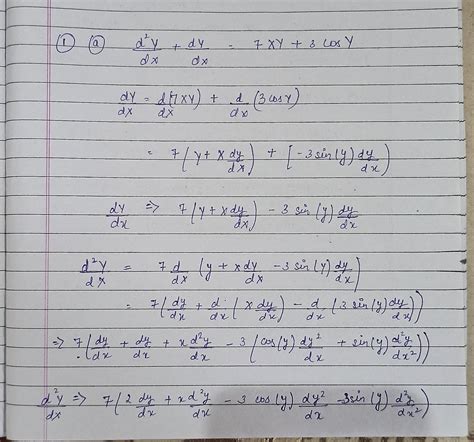 ① ⓐ d²Y/dx + dY/dx = 7XY + 3 cosY
dY/dx = d/dx (7XY) + d/dx (3 cosY)
= 7(y + x dy/dx) + [-3 sin(y) dy/dx)
dY/dx ⇒ 7(y + x dy/dx) - 3 sin(y) dy/dx
d²Y/dx = 7 d/dx (y + x dy/dx - 3 sin(y) dy/dx)
= 7(dy/dx + d/dx (x dy/dx) - d/dx (3 sin(y) dy/dx))
⇒ 7(dy/dx + dy/dx + x d²y/dx - 3(cos(y) dy²/dx + sin(y) d²y/dx²))
d²Y/dx ⇒ 7(2 dy/dx + x d²y/dx - 3 cos(y) dy²/dx - 3 sin(y) d²y/dx²)